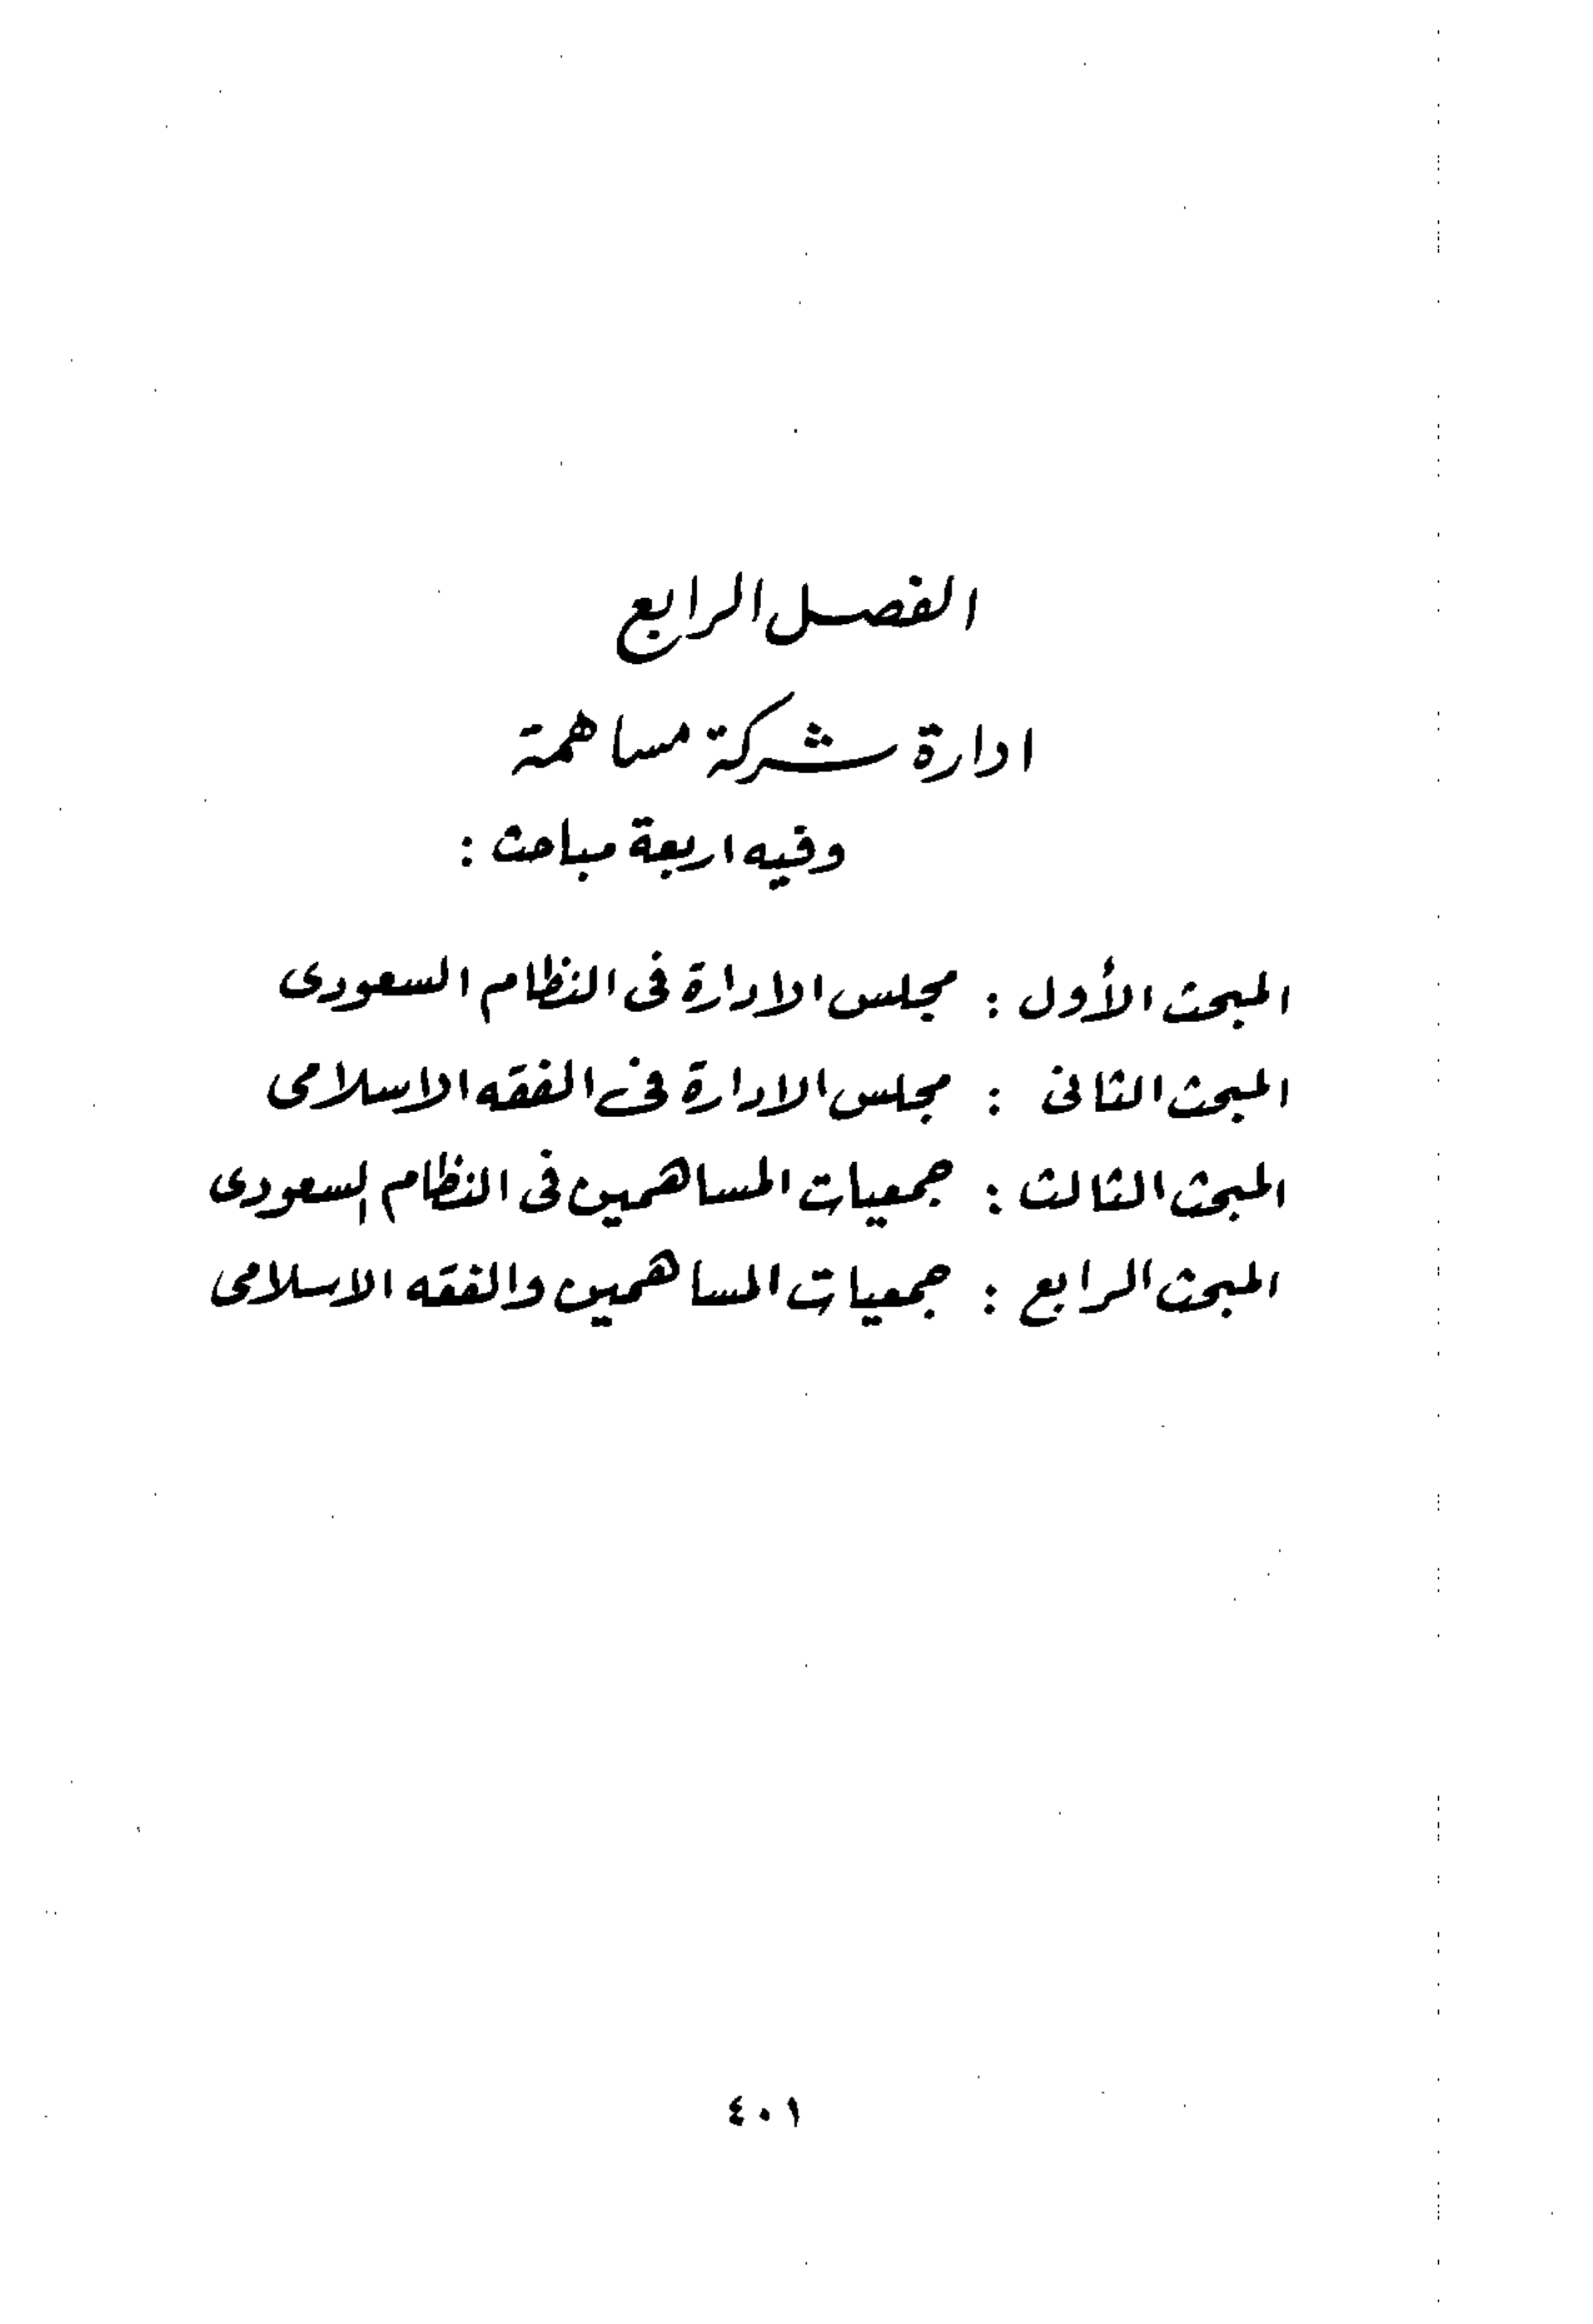 الفصل الرابع
ادارة شركة مساهمة
وفيه اربعة مباحث :
المبحث الأول : مجلس الادارة فى النظام السعودى
المبحث الثانى : مجلس الادارة فى الفقه الاسلامى
المبحث الثالث : جمعيات المساهمين فى النظام السعودى
المبحث الرابع : جمعيات المساهمين والفقه الاسلامى
٤٠١